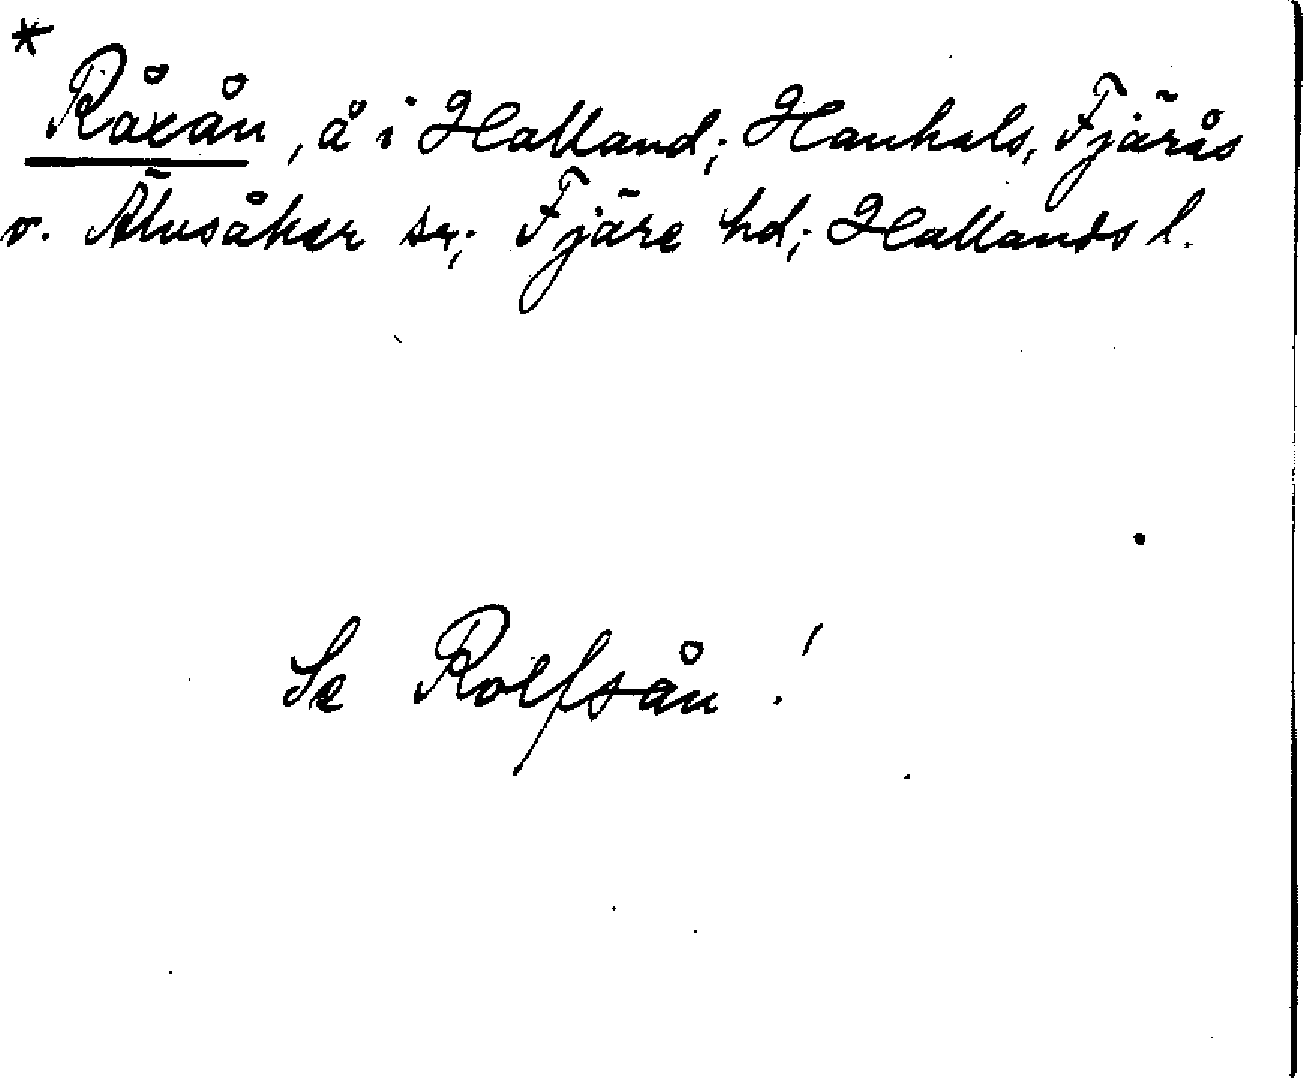 *
Råxån, å i Halland; Hanhals, Fjärås
o. Älvsåker sn; Fjäre hd; Hallands l.
Se Rolfsån!